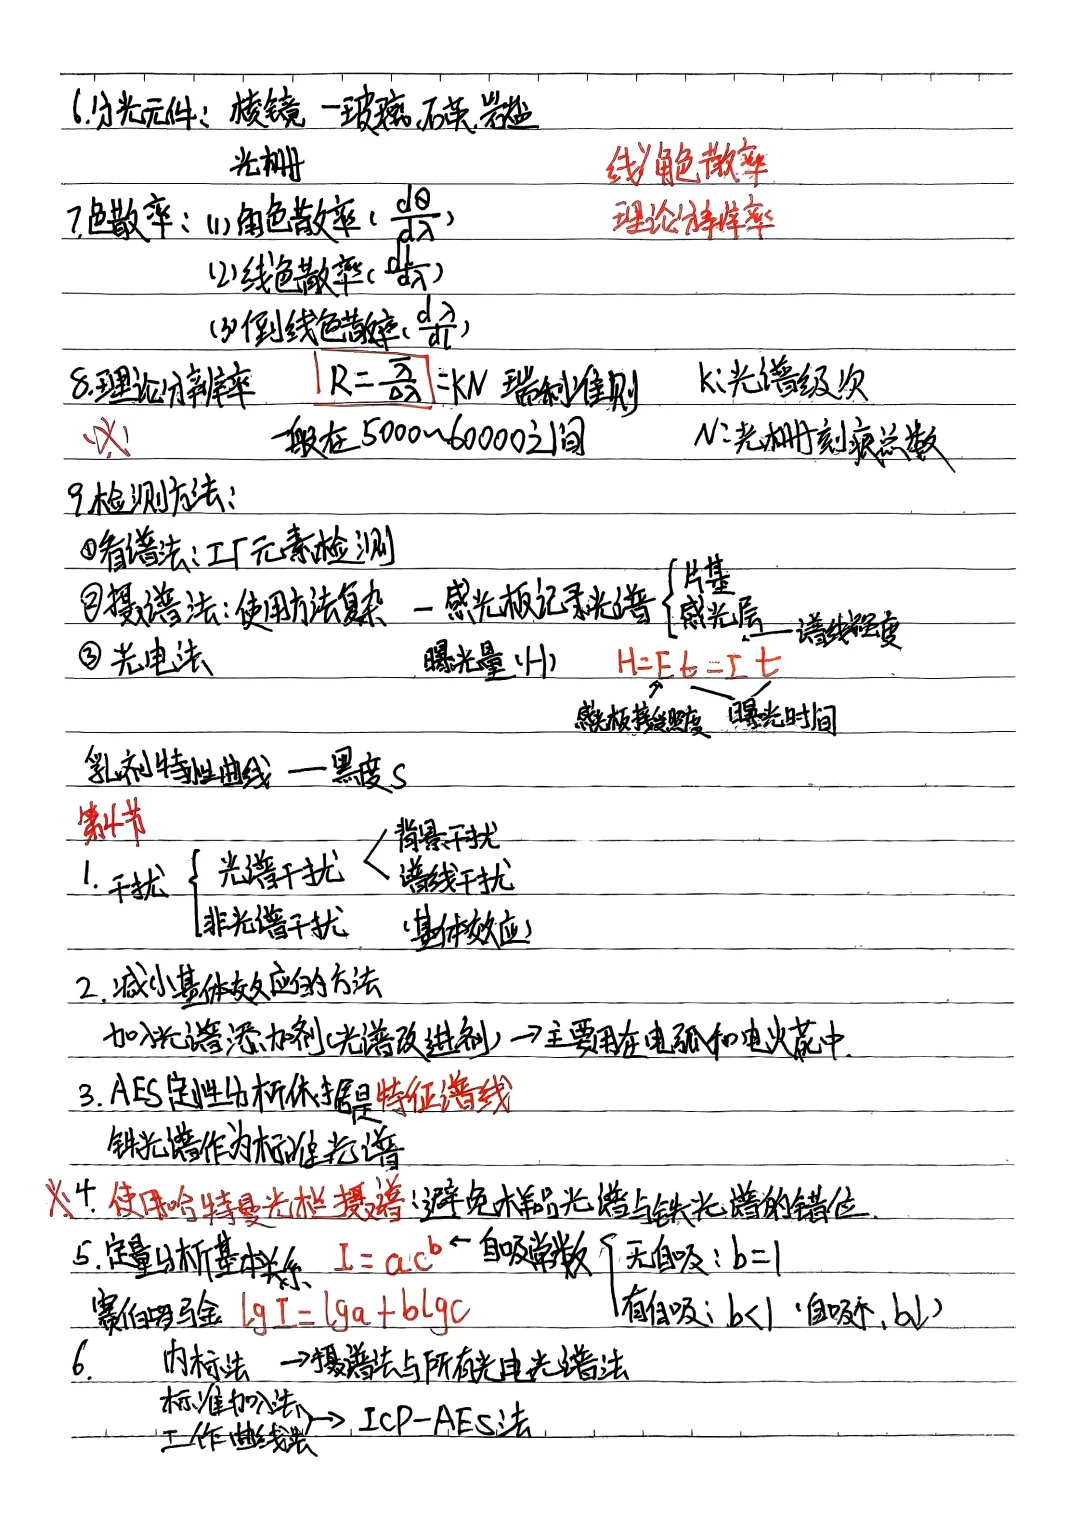 6.分光元件：棱镜 — 玻璃、石英、岩盐
光栅
线/角色散率
7.色散率：(1)角色散率(dθ/dλ)
理论分辨率
(2)线色散率(dl/dλ)
(3)倒线色散率(dλ/dl)
8.理论分辨率 R=λ̄/Δλ=KN 瑞利准则 K:光谱级次
※ 一般在5000~60000之间 N:光栅刻痕总数
9.检测方法：
①看谱法：工厂元素检测
②摄谱法：使用方法复杂 — 感光板记录光谱{片基
感光层
谱线强度
③光电法 曝光量(H) H=Et=It
感光板接受照度 曝光时间
乳剂特性曲线 — 黑度S
第4节
1.干扰{光谱干扰<背景干扰
谱线干扰
非光谱干扰 (基体效应)
2.减小基体效应的方法
加入光谱添加剂(光谱改进剂)→主要用在电弧和电火花中.
3.AES定性分析依据是特征谱线
铁光谱作为标准光谱
※4.使用哈特曼光栏摄谱：避免样品光谱与铁光谱的错位.
5.定量分析基本关系 I=acᵇ←自吸常数{无自吸：b=1
赛伯-罗马金 lgI=lga+blgc 有自吸：b<1 (自吸↑,b↓)
6. 内标法 →摄谱法与所有光电光谱法
标准加入法
工作曲线法 → ICP-AES法